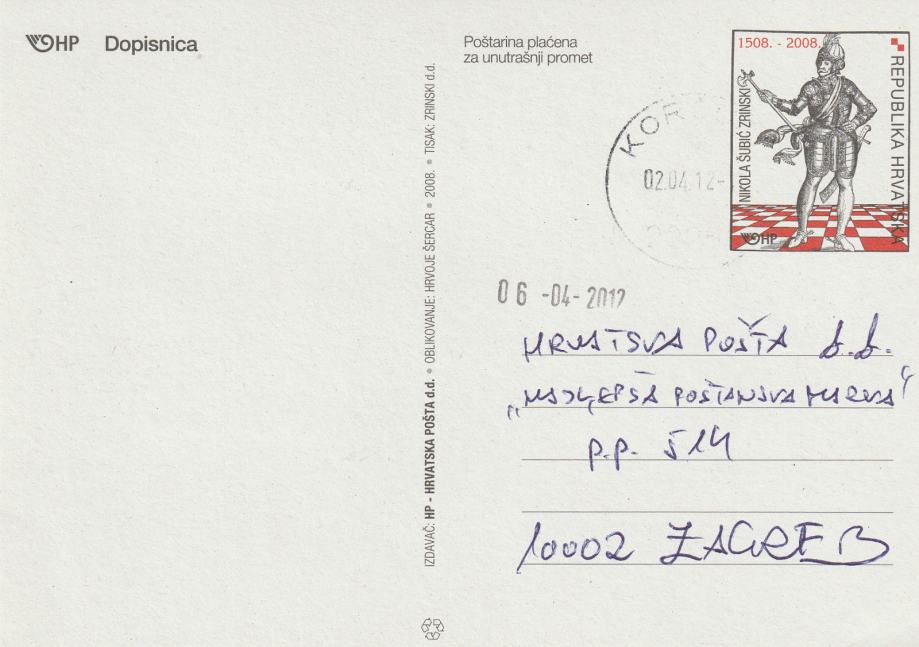 HP Dopisnica
Poštarina plaćena
za unutrašnji promet
1508. - 2008.
REPUBLIKA HRVATSKA
NIKOLA ŠUBIĆ ZRINSKI
HP
KOR
02.04.12-
06 -04- 2012
IZDAVAČ: HP - HRVATSKA POŠTA d.d. • OBLIKOVANJE: HRVOJE ŠERCAR • 2008. • TISAK: ZRINSKI d.d.
HRVATSKA POŠTA d.d.
„NAJLJEPŠA POŠTANSKA MARKA“
p.p. 514
10002 ZAGREB